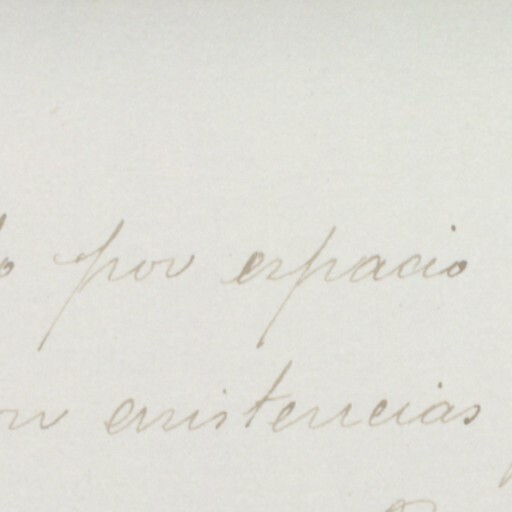 por espacio
existencias